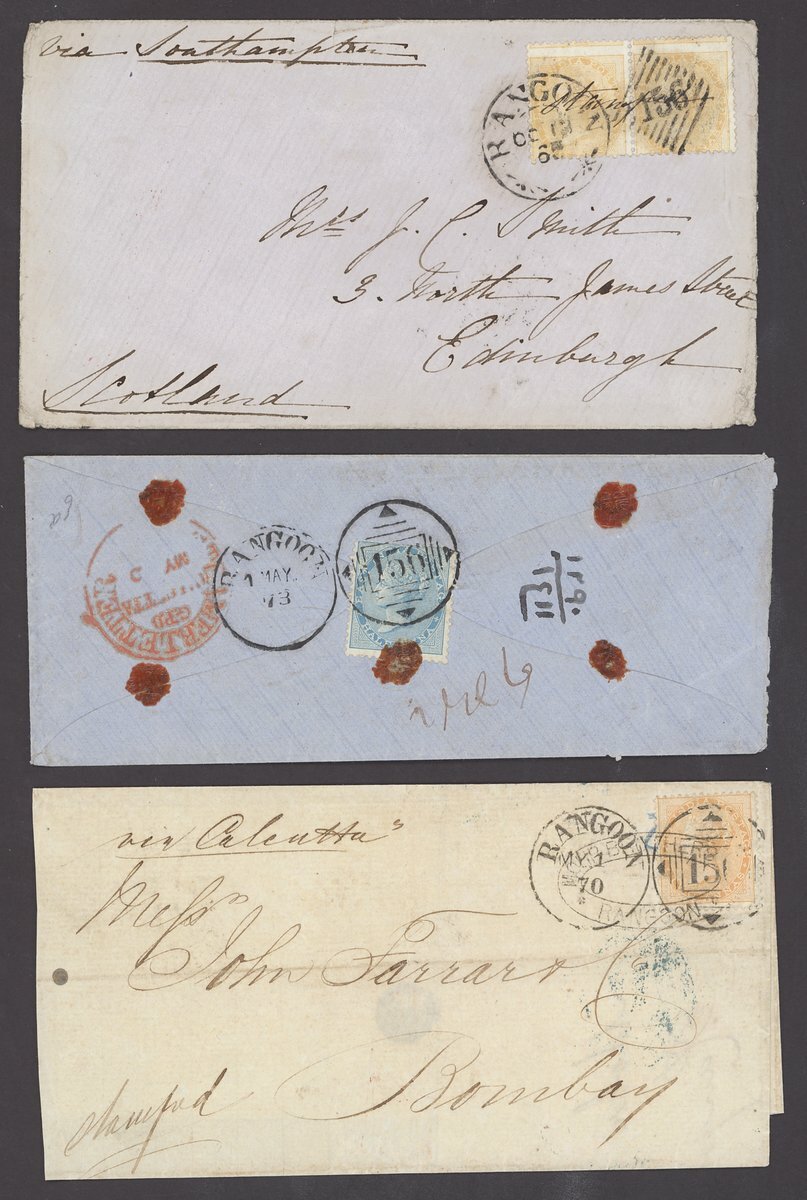 via Southampton
stamped
RANGOON
OC
65
156
Mrs J. C. Smith
3. North James Street
Edinburgh
Scotland
RANGOON
1 MAY.
73
156
HALF ANNA
MY
GPO
via Calcutta"
RANGOON
70
15
RANGOON
Messrs
John Farrar & Co
Bombay
stamped